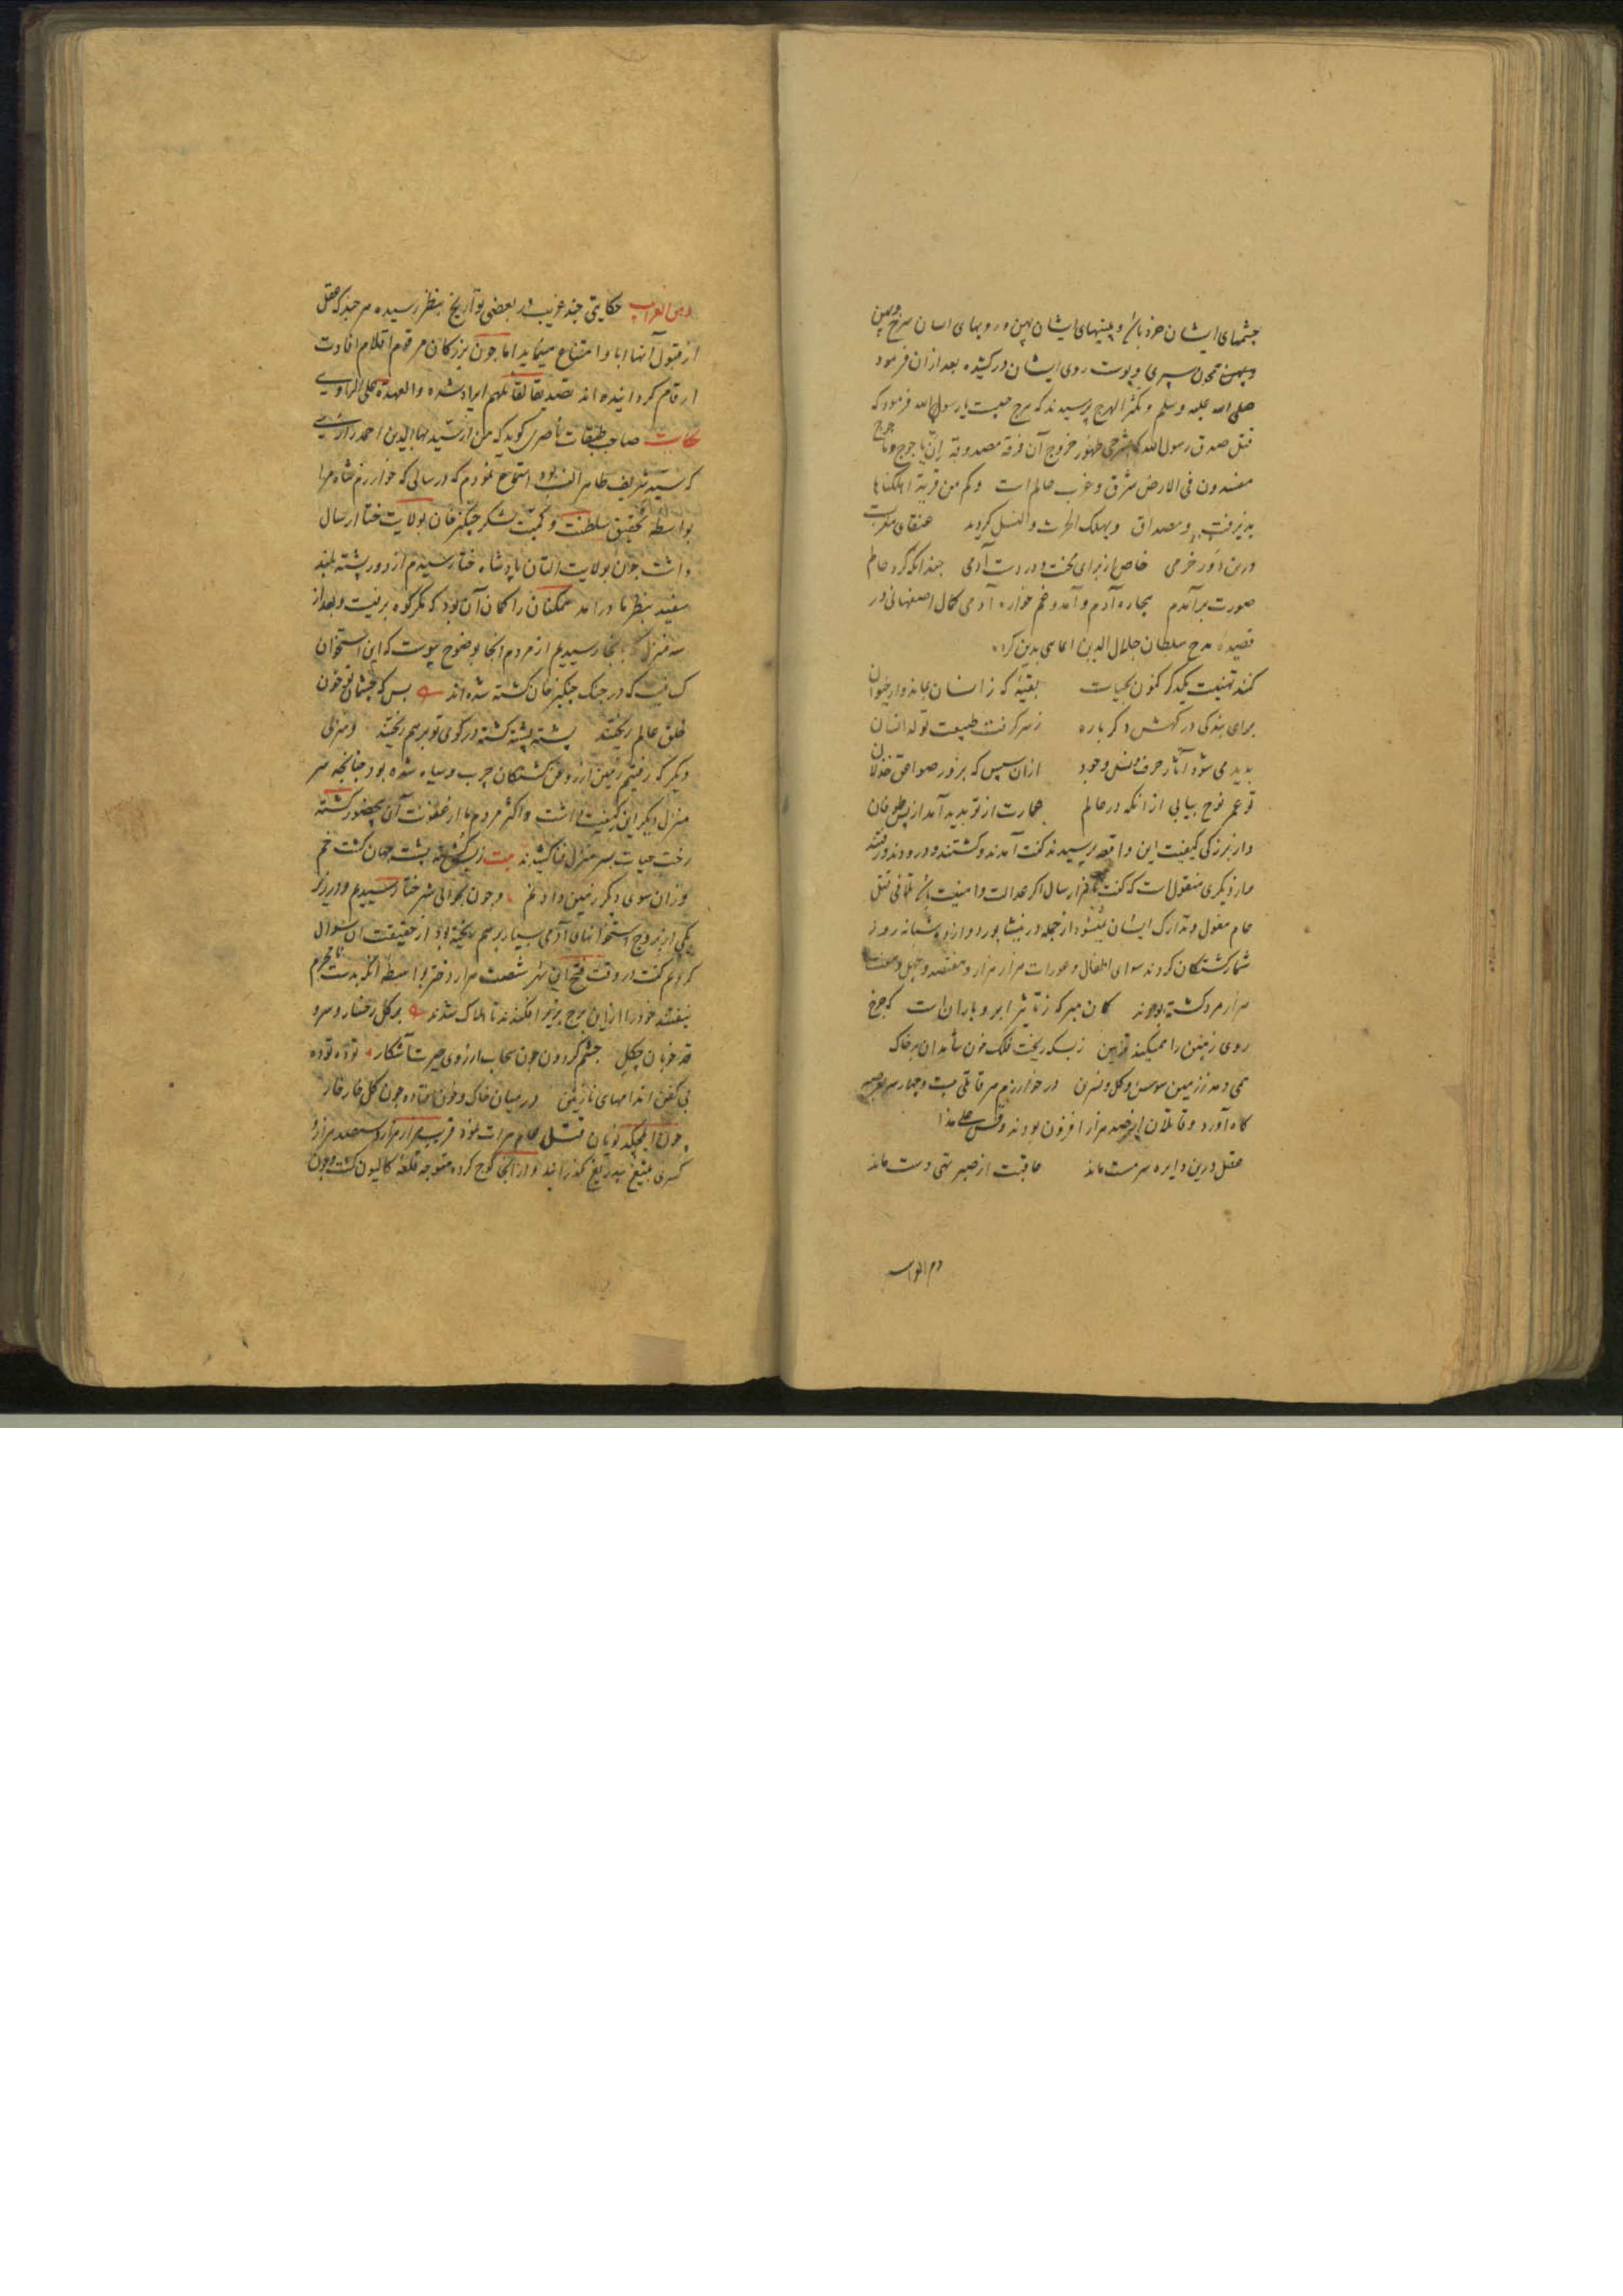 چشمهای ایشان خرد باشد و بینیهای ایشان پهن و رویهای ایشان سرخ و پهن
و پهن همچون سپری و پوست روی ایشان در کشیده بعد از ان فرمود
صلی الله علیه وسلم و یکثر الهرج پرسیدند که هرج چیست یا رسول الله فرمود که
قتل صدق رسول الله که شرحی ظهور خروج آن فرقه مصدوقه اِنّ یاجوج وماجوج
مفسدون فی الارض شرق و غرب عالم است وکم من قریة اهلکناها
پذیرفت و مصداق ویهلک الحرث والنسل کردند عنقای مغرب
درین دور خرمی خاص از برای محنت و درد است آدمی چندانکه گرد عالم
صورت برآمدم بیچاره آدم و آمد و غم خواره آدمی کمال اصفهانی در
قصیده مدح سلطان جلال الدین
کنند تهنیت یکدگر کنون بحیات بقیهٔ که ز انسان بماند و از حیوان
برای بندگی درگهش دگر باره ز سر گرفت طبیعت توالد انسان
پدید می شود آثار حرث و نسل وجود ازان سپس که بزور صواعق خذلان
تو عم نوح بیابی از انکه در عالم عمارت از تو پدید آمد از پس طوفان
و از بزرگی کیفیت این واقعه پرسیدند گفت آمدند و کشتند و درودند و رفتند
و از دیگری منقول است که گفت تا هزار سال اگر عدالت و امنیت باشد تلافی قتل
عام مغول و تدارک ایشان نشود از جمله در نیشابور دوازده شبانه روز
شمار کشتگان کردند سوای اطفال و عورات هزار هزار و هفتصد و چهل و هفت
هزار مرد کشته بودند گمان مبر که ز تأثیر ابر و باران است که چرخ
روی زمین را همیکند تزیین ز بسکه ریخت فلک خون شاهدان بر خاک
همی دمد ز زمین سوسن و گل و نسرین در خوارزم هر قاتلی بیست و چهار سر بعرصه
گاه آورد و قاتلان از صد هزار افزون بودند وقس علی هذا
عقل درین دایره سرمست ماند عاقبت از صبر تهی دست ماند
ومن الغرایب
ومن الغرایب حکایتی چند غریب در بعضی تواریخ بنظر رسیده هر چند که عقل
از قبول آنها ابا و امتناع مینماید اما چون بزرگان مرقوم اقلام افادت
ارقام گردانیده اند تصدیقا لقائلهم ایراد شده والعهدة علی الراوی
حکایت صاحب طبقات ناصری گوید که من از سید بهاالدین احمد رازی
که سید شریف ظاهر النسب بود استماع نمودم که در سالی که خوارزم شاه مرا
بواسطه تحقیق سلطنت و کمیت لشکر چنگیز خان بولایت ختا ارسال
داشت چون بولایت التان پادشاه ختا رسیدم از دور پشته بلند
سفید بنظر ما درامد همگنان را گمان آن بود که مگر کوه برفیست و بعد از
سه منزل که بانجا رسیدیم از مردم انجا بوضوح پیوست که این استخوان
کسانیست که در جنگ چنگیز خان کشته شده اند بس که چشمان تو خون
خلق عالم ریختند پشته پشته کشته در کوی تو بر هم ریختند و منزلی
دیگر که رفتیم زمین از روغن کشتگان چرب و سیاه شده بود چنانچه سر
منزل دیگر این کیفیت داشت و اکثر مردم ما از عفونت آن کشته
رخت حیات بسر منزل فنا کشیدند بیت ز پشته جهان گشت خم
وزان سوی دیگر زمین داد نم و چون بحوالی شهر ختا رسیدیم و در زیر
یکی از بروج استخوانهای آدمی بسیار بر هم ریخته بود از حقیقت ان سوال
کردیم گفتند در وقت فتح این شهر شصت هزار دختر بواسطه آنکه بدست نامحرم
نیفتند خود را از این برج بزیر افگندند تا هلاک شدند بر گل رخسار و سرو
قد خوبان چگل چشم گردون چون سحاب از روی حیرت اشکبار توده توده
بی کفن اندامهای نازنین در میان خاک و خون افتاده چون گل خار خار
چون ایلچیکدای نویان قتل عام هرات نمود قریب هزار هزار و سیصد هزار و
کسری بتیغ بیدریغ گذرانید و از آنجا کوچ کرده متوجه قلعه کالیون گشت و چون